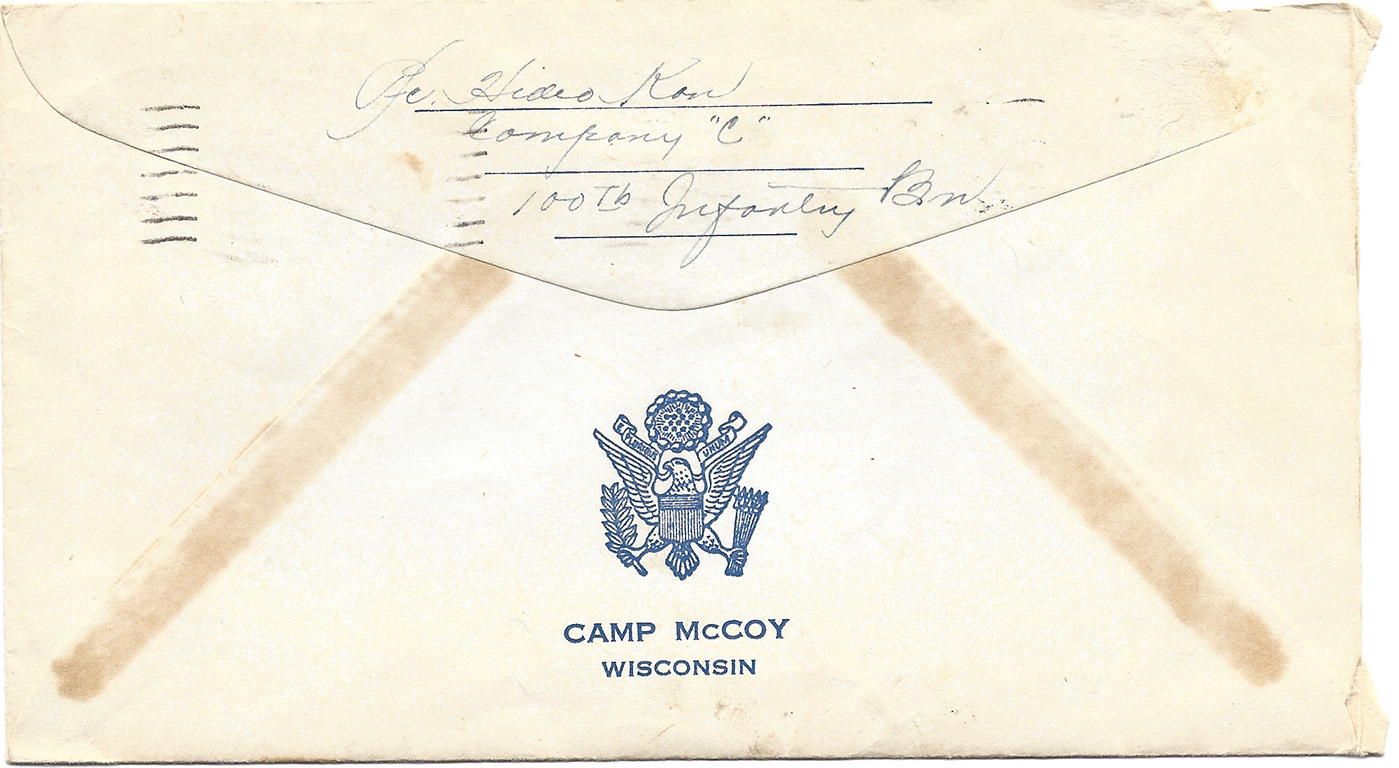 Pfc. Hideo Kon
Company "C"
100th Infantry Bn
E PLURIBUS UNUM
CAMP McCOY
WISCONSIN